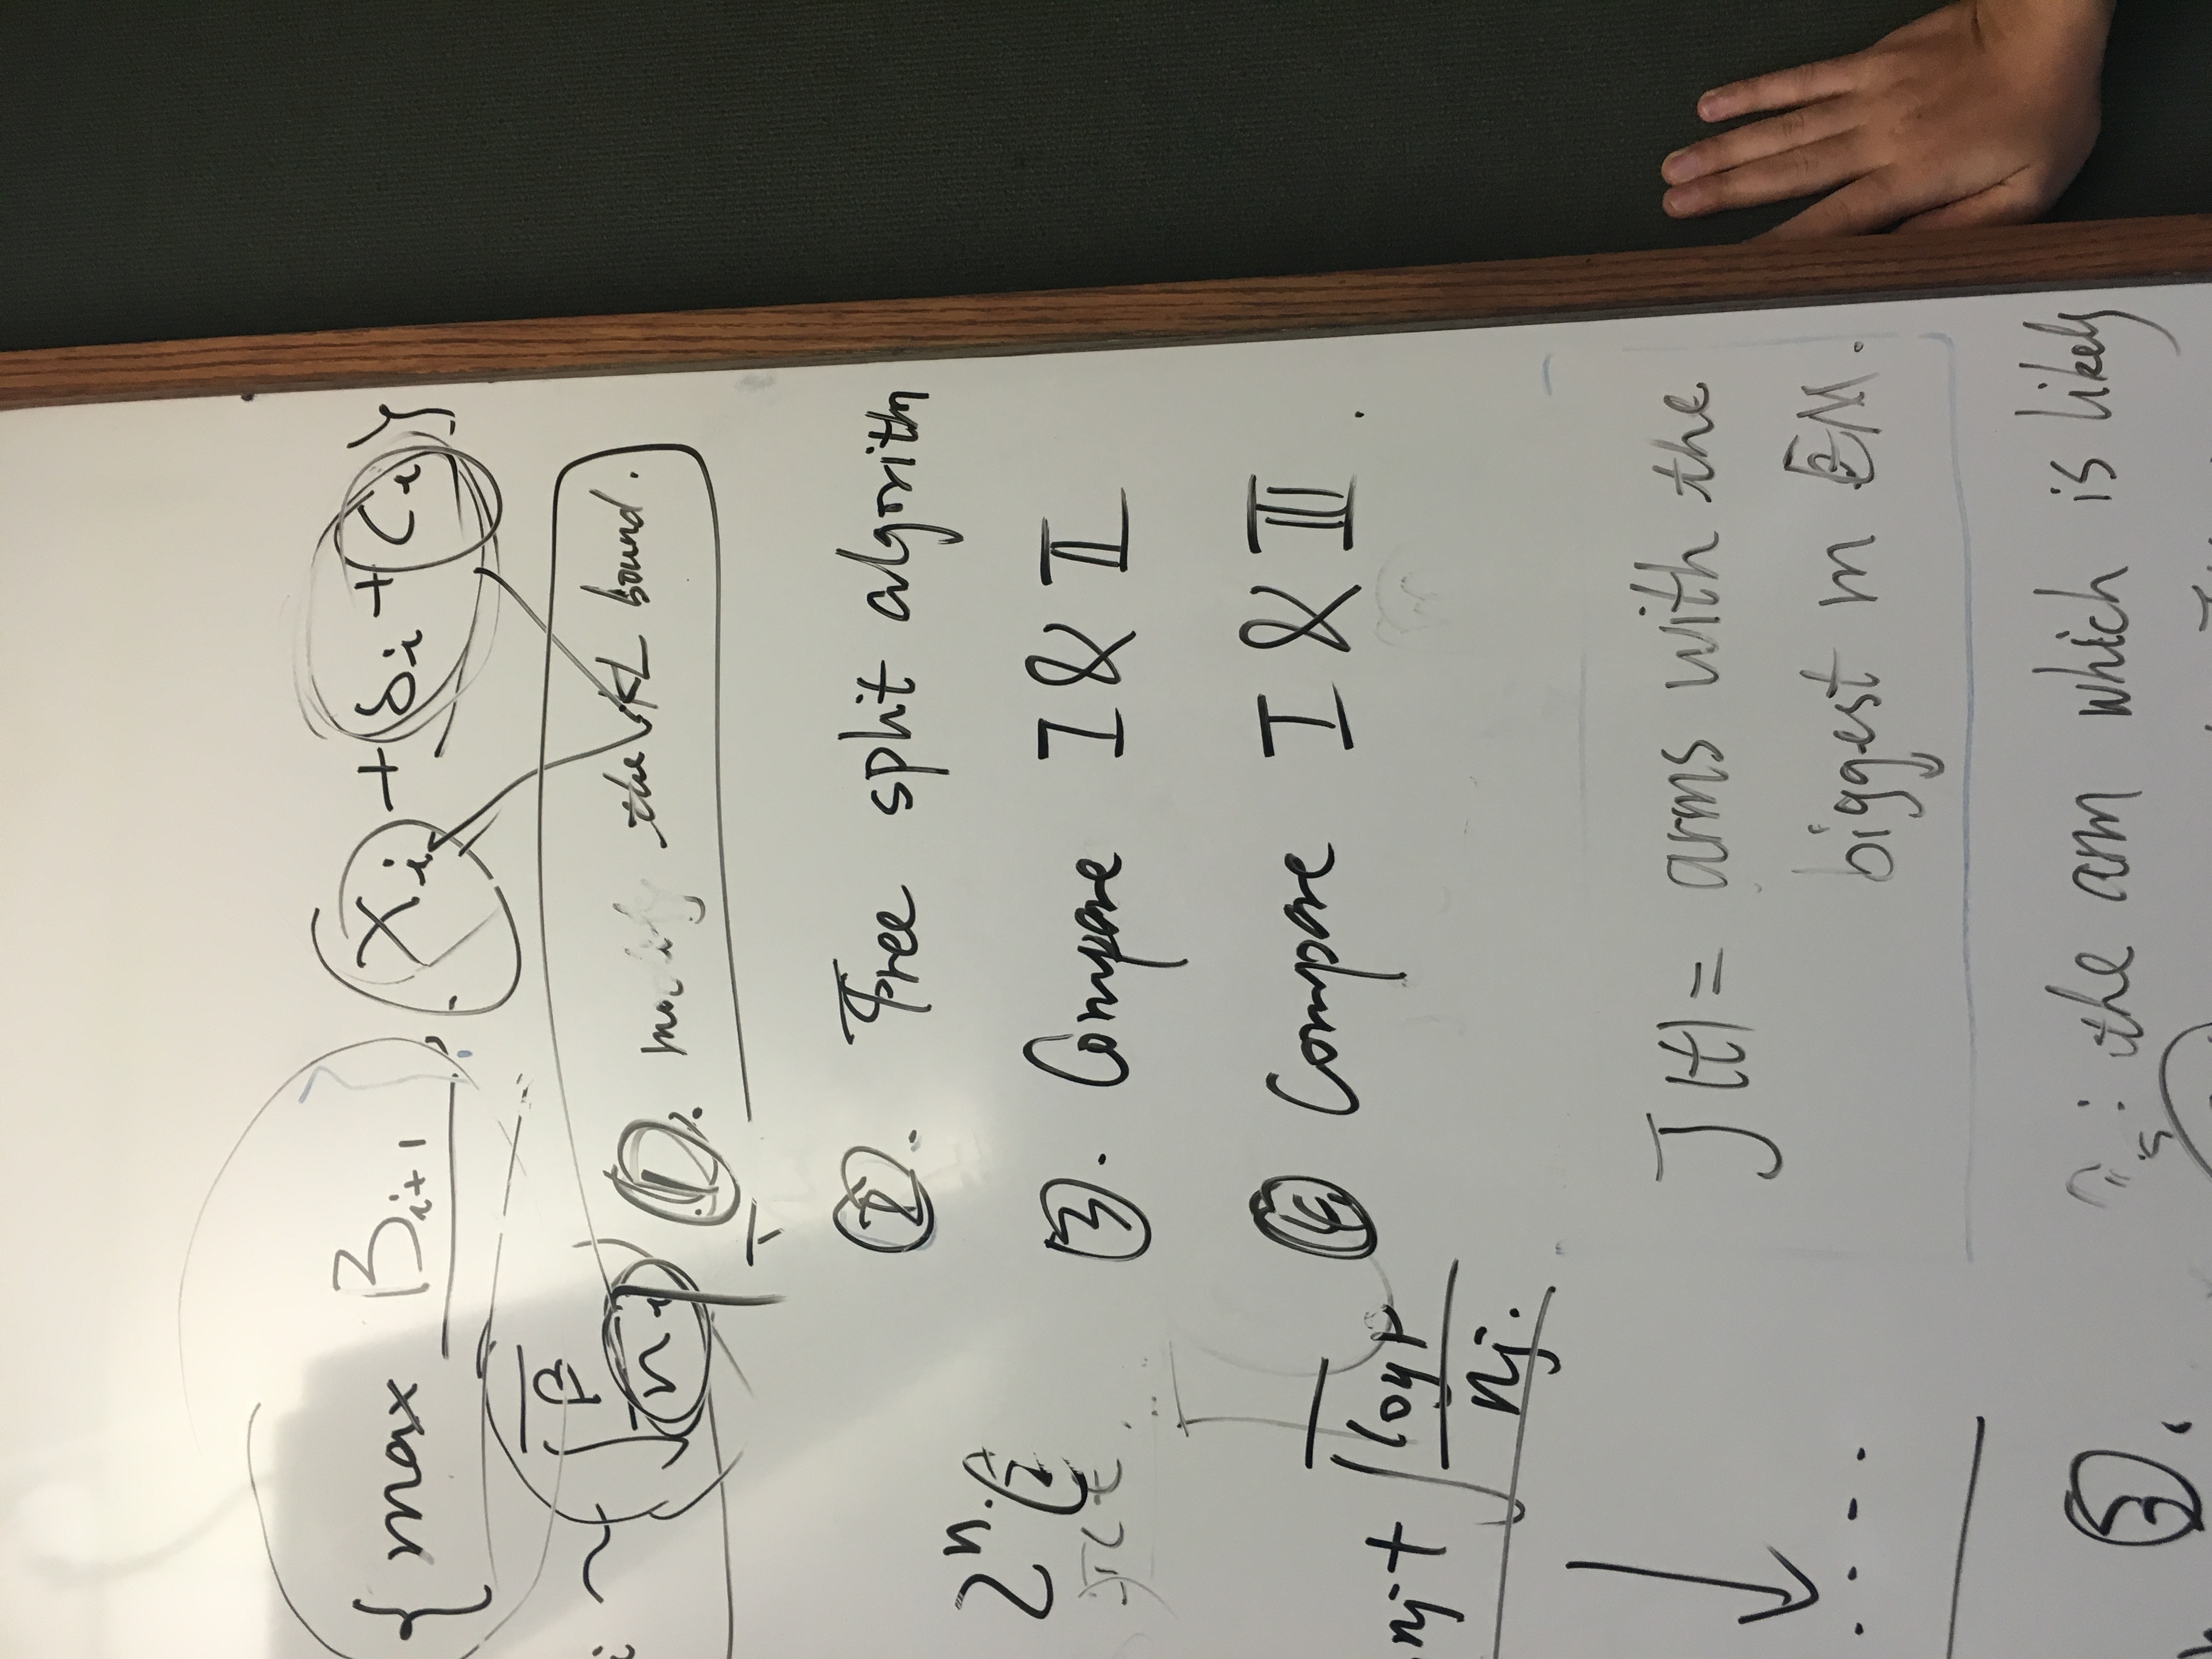 { max B_{i+1} , X_i + δ_i + C_i }
i ~ √(β / n_i)
①. modify the KL bound.
②. Tree split algorith
2^n.
③. Compare I & II
④ Compare I & III.
nj + √(log β / nj.)
J(t) = arms with the
biggest m EM.
: the arm which is likely